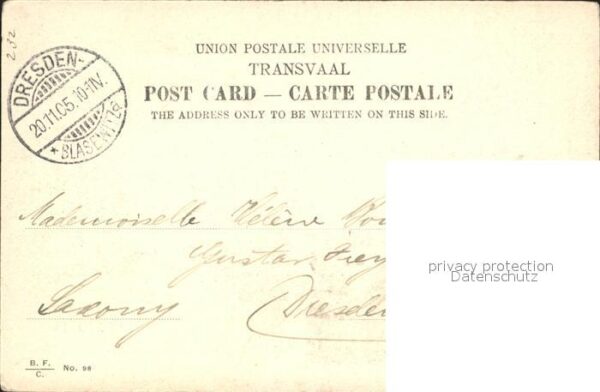 2.02
DRESDEN-
20.11.05. 10-11V.
* BLASEWITZ
UNION POSTALE UNIVERSELLE
TRANSVAAL
POST CARD — CARTE POSTALE
THE ADDRESS ONLY TO BE WRITTEN ON THIS SIDE.
Mademoiselle Hélène
Gustav Frey
privacy protection
Datenschutz
Saxony Dresden
B. F.
C. No. 98